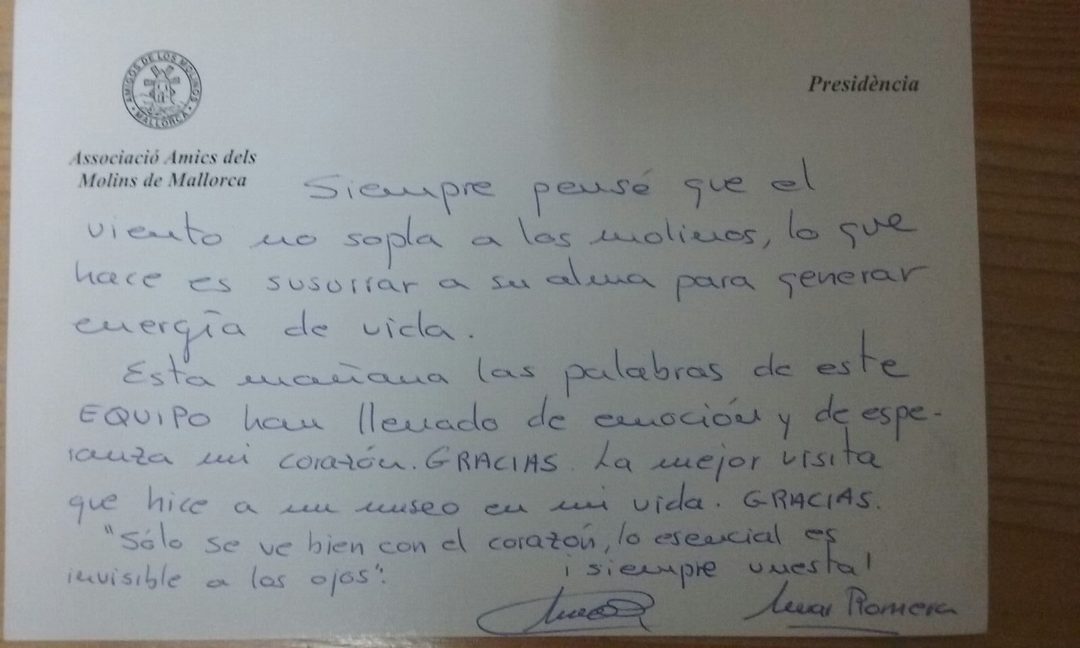 AMIGOS DE LOS MOLINOS
MALLORCA
Presidència
Associació Amics dels
Molins de Mallorca
Siempre pensé que el
viento no sopla a los molinos, lo que
hace es susurrar a su alma para generar
energía de vida.
Esta mañana las palabras de este
EQUIPO han llenado de emoción y de espe-
ranza mi corazón. GRACIAS. La mejor visita
que hice a un museo en mi vida. GRACIAS.
"Sólo se ve bien con el corazón, lo esencial es
invisible a los ojos".
¡siempre vuestra!
Mar Romera